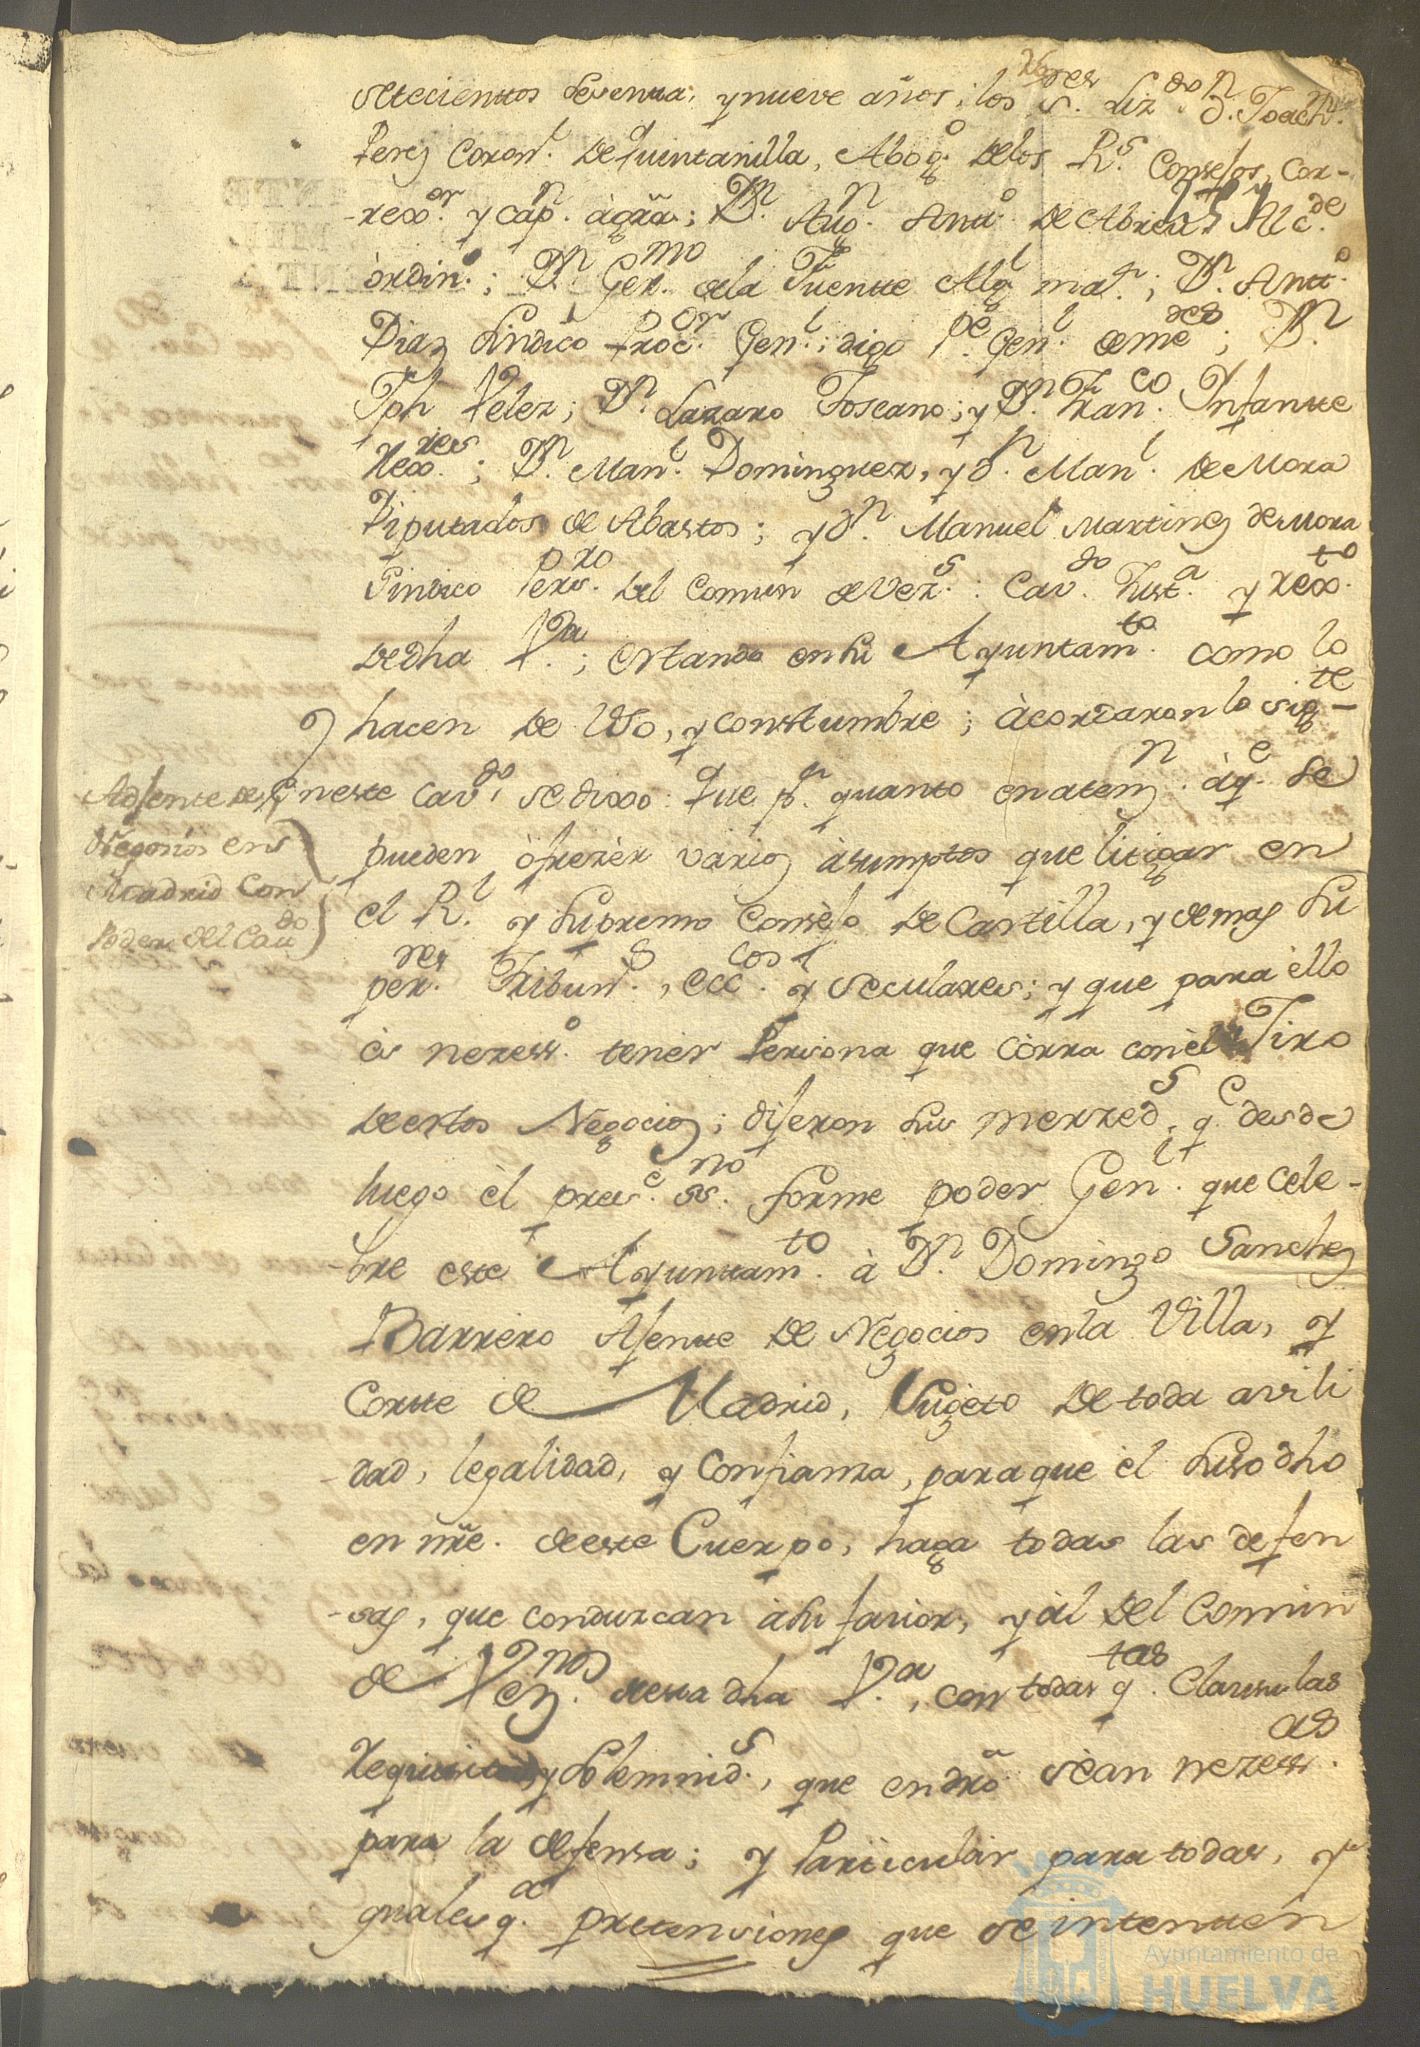 setecientos sesenta, y nueve años; los S.res Liz.do D.n Joach.n
Perez Coron.l de Quintanilla, Abog.o de los R.s Consejos, Cor-
-rex.or y Cap.n à grã; D.n Aug.n Ant.o de Abreu, Alc.de
òrdin.o; D.n Ger.mo de la Fuente Alg.l ma.r; D.n Ant.o
Diaz Sindico Proc.or Gen.l; digo P.e Gen.l de me.des; D.n
Jph Velez; D.n Lazaro Toscano; y D.n Fran.co Infante
Rex.res; D.n Man.l Dominguez, y D.n Man.l de Mora
Diputados de Abastos; y D.n Manuel Martinez de Mora
Sindico Pers.ro del Comun de Vez.s: Cav.do Just.a y rex.to
de dha V.a; estando en su Ayuntam.to como lo
hacen de Uso, y constumbre; àcordaron lo sig.te-
En este Cav.do se dixo: Que p.r quanto en aten.n à q.e se
pueden òfrezèr varios àsumptos que litigar en
el R.l y Supremo Consèjo de Castilla, y demas Su
per.res Tribun.s, ecc.cos y seculares; y que para èllo
ès nezess.o tener Persona que còrra con èl Jiro
de estos Negocios; dijeron sus merzed.s, q.e desde
luego èl pres.e ss.no forme poder Gen.l que cele-
-bre este Ayuntam.to à D.n Domingo Sanchez
Barrero Ajente de Negocios en la Villa, y
Corte de Madrid, Sugeto de toda avili
dad, legalidad, y Confianza, para que èl Susodho
en nre. de este Cuerpo, haga todas las defen
-sas, que conduzcan à su favior, y àl del Comun
de Vez.nos de esta dha V.a, con todas q.tas Clausulas
Requisitos, y Solemnid.s, que en dro sèan nezess.as
para la defensa; y Particular para todas, y
quales q.a pretensiones que se intenten
Ajente de
Negocios en
Madrid con
Poder del Cav.do
Ayuntamiento de
HUELVA